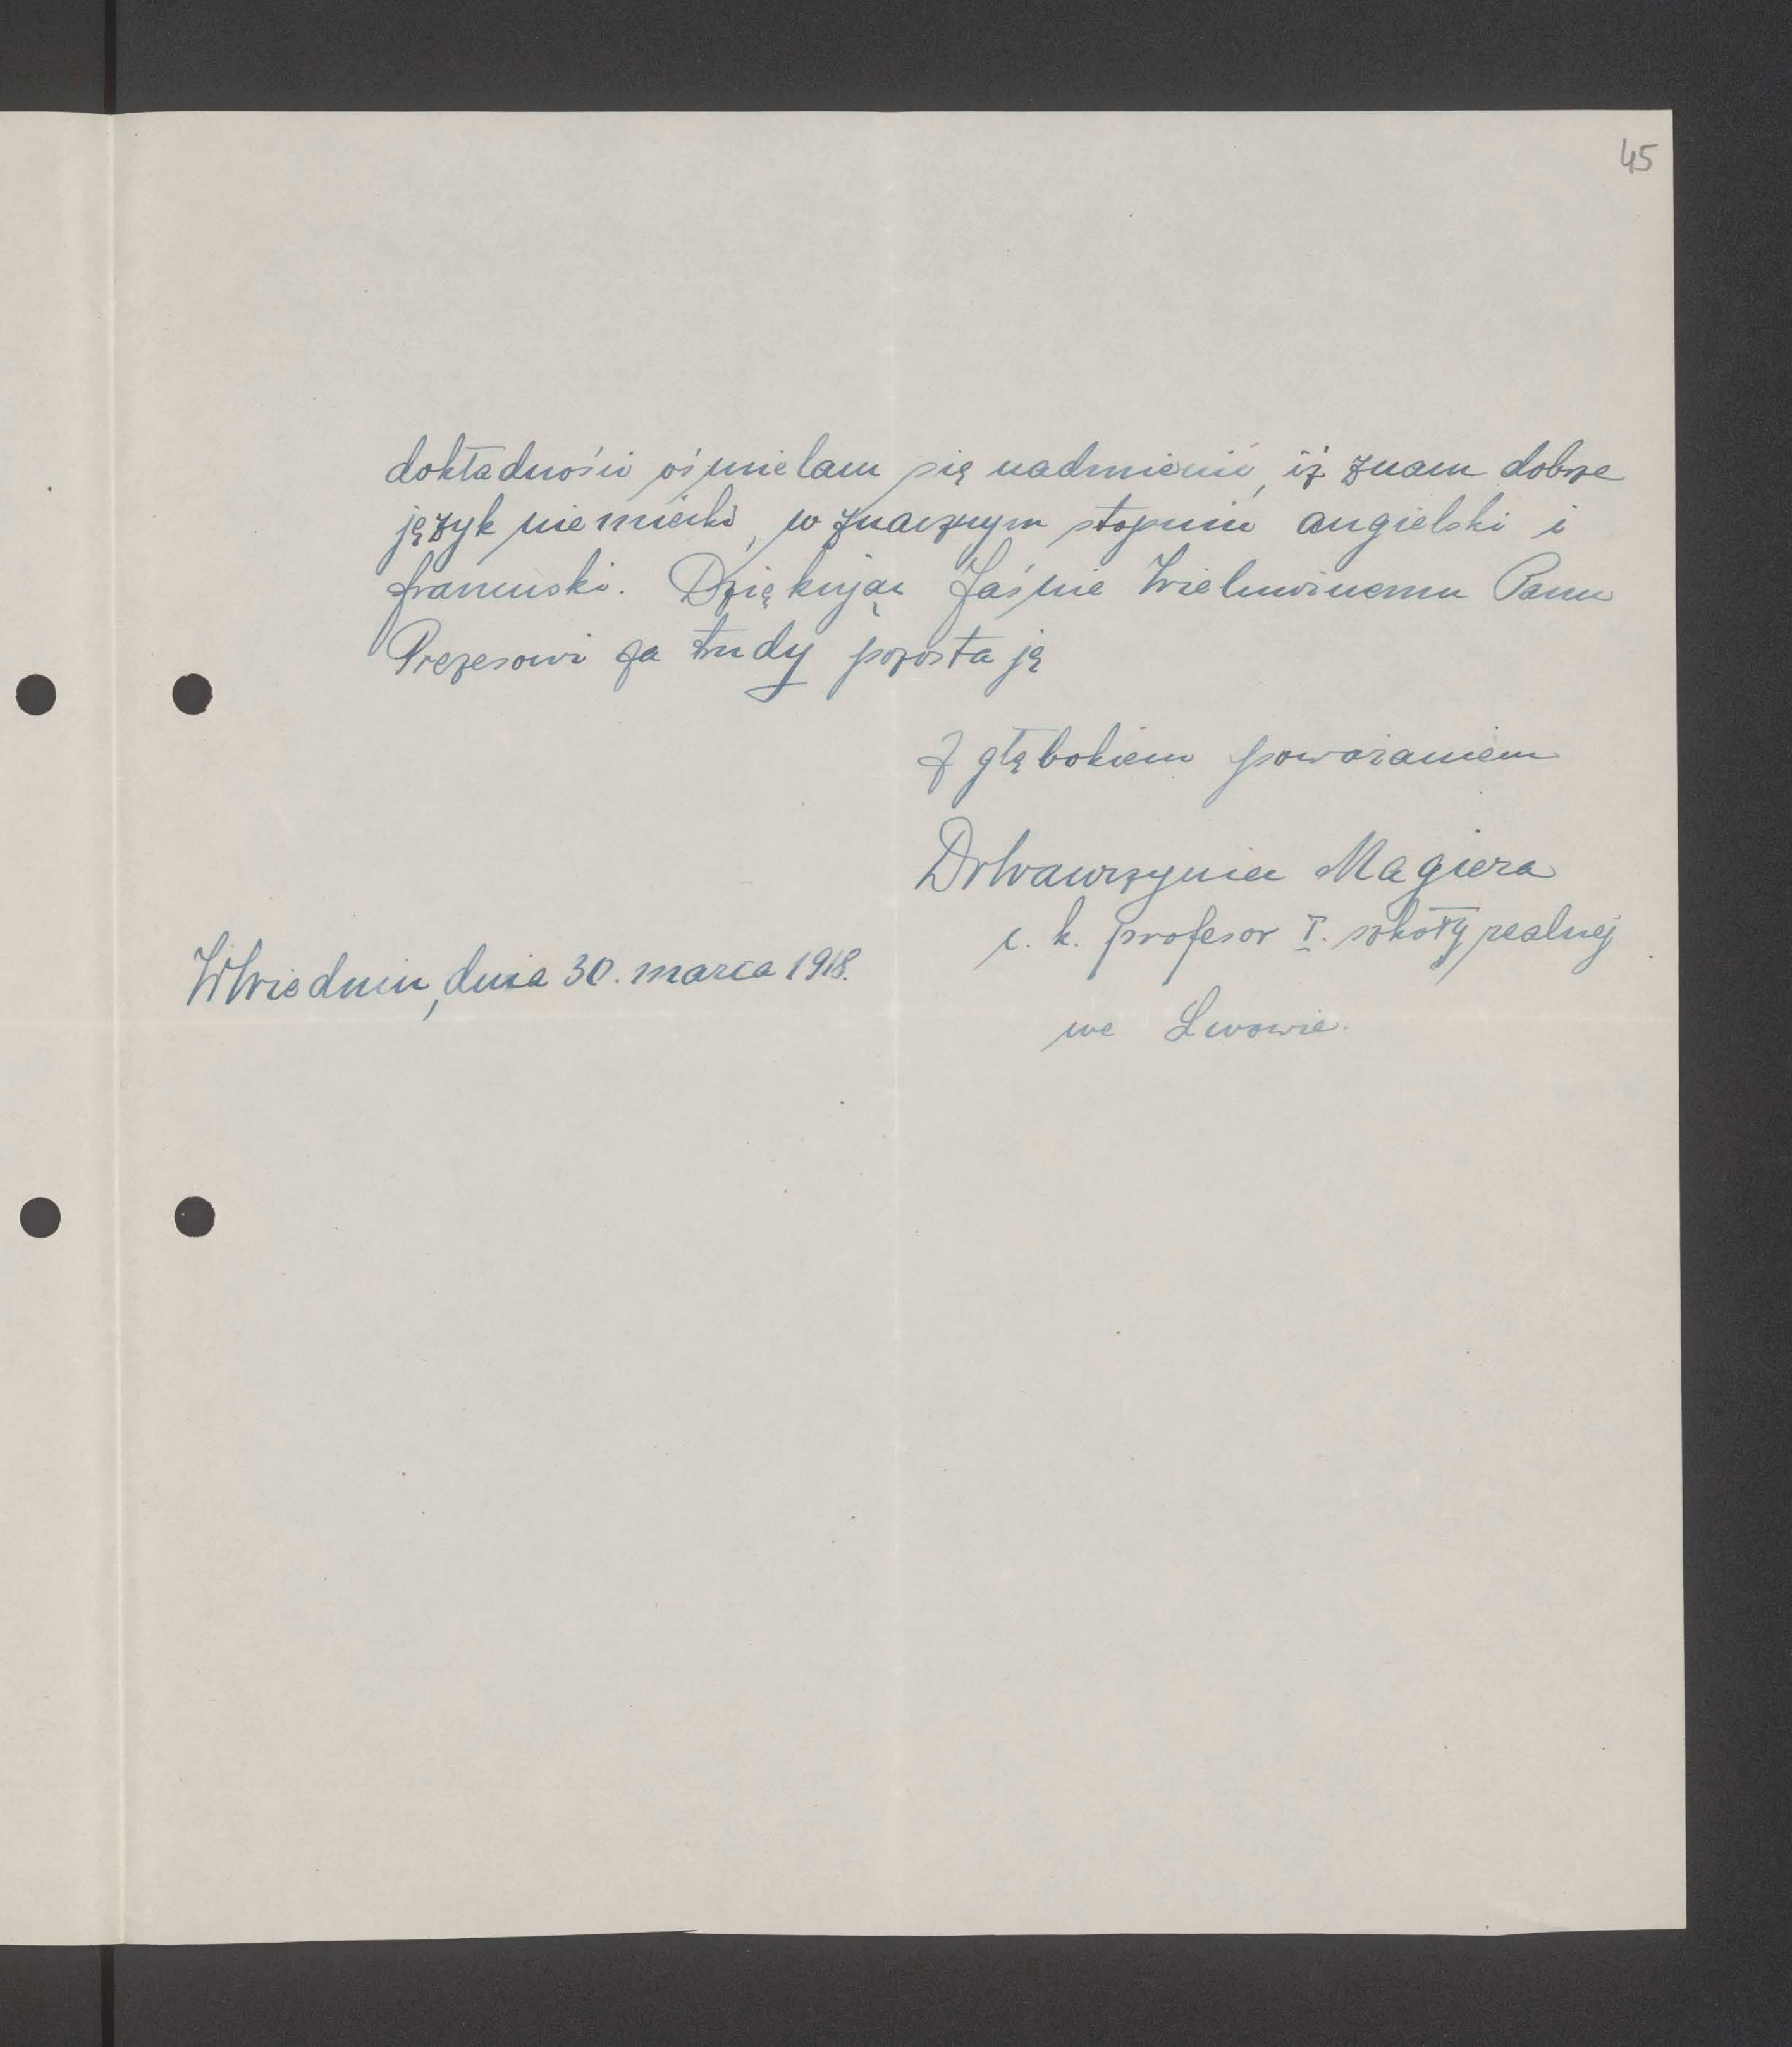 45
dokładności ośmielam się nadmienić, iż znam dobrze
język niemiecki, w znacznym stopniu angielski i
francuski. Dziękując Jaśnie Wielmożnemu Panu
Prezesowi za trudy pozostaję
Z głębokiem poważaniem
Dr Wawrzyniec Magiera
c. k. profesor I. szkoły realnej
W Wiedniu, dnia 30. marca 1918.
we Lwowie.